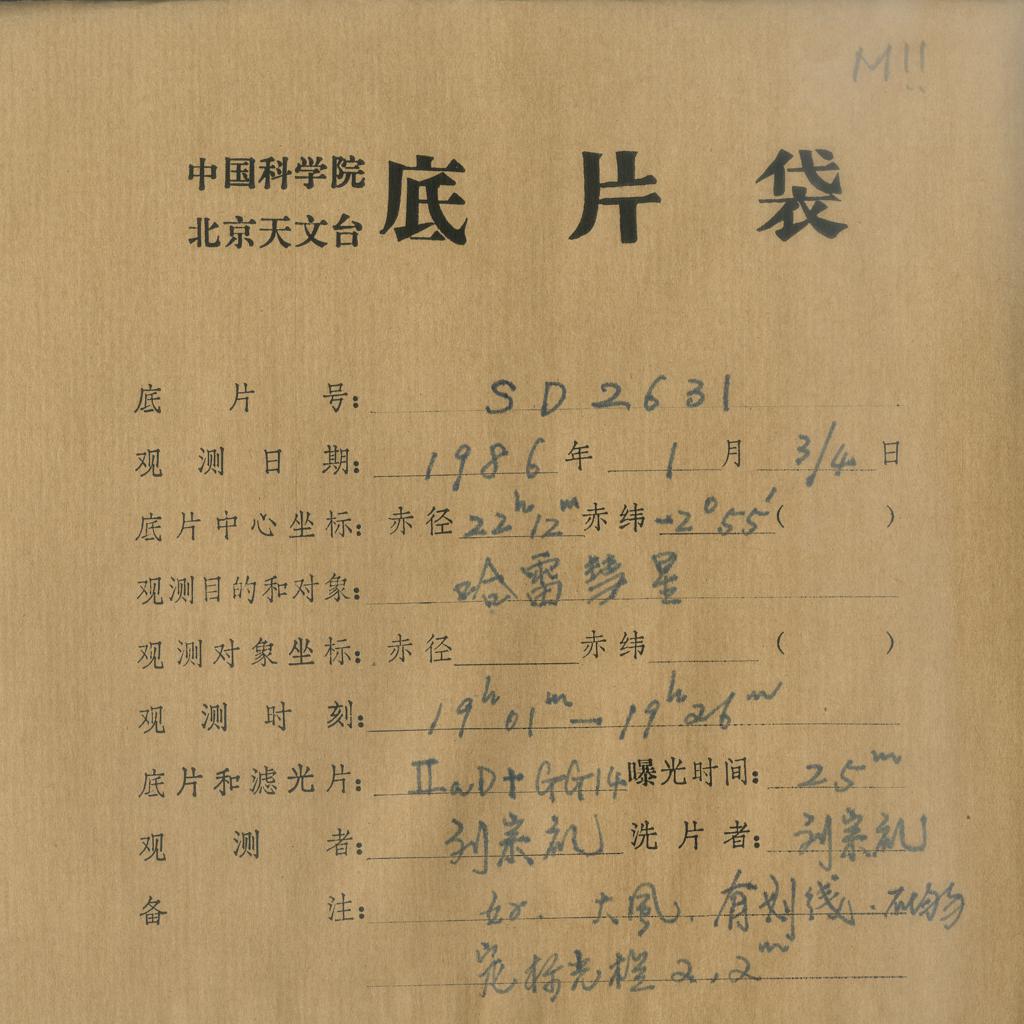 M!!
中国科学院
北京天文台
底片袋
底片号: SD2631
观测日期: 1986年 1月 3/4日
底片中心坐标: 赤径 22ʰ12ᵐ 赤纬 -2°55′ ( )
观测目的和对象: 哈雷彗星
观测对象坐标: 赤径 赤纬 ( )
观测时刻: 19ʰ01ᵐ—19ʰ26ᵐ
底片和滤光片: IIaD+GG14 曝光时间: 25ᵐ
观测者: 刘宗礼 洗片者: 刘宗礼
备注: 大風. 有划线.
光栏 2.2ᵐ